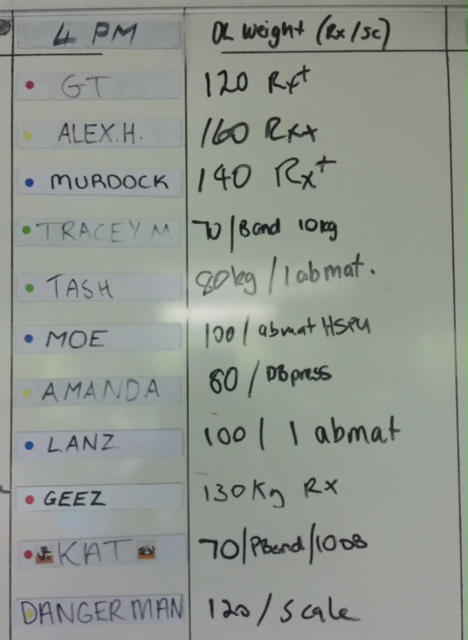 4 PM DL Weight (Rx/Sc)
GT 120 Rx+
ALEX.H. 160 Rx+
MURDOCK 140 Rx+
TRACEY M 70/Band 10kg
TASH 80kg / 1 abmat.
MOE 100/ abmat HSPU
AMANDA 80 / DB press
LANZ 100 / 1 abmat
GEEZ 130Kg Rx
KAT 70/PBand/10DB
DANGERMAN 120 / Scale